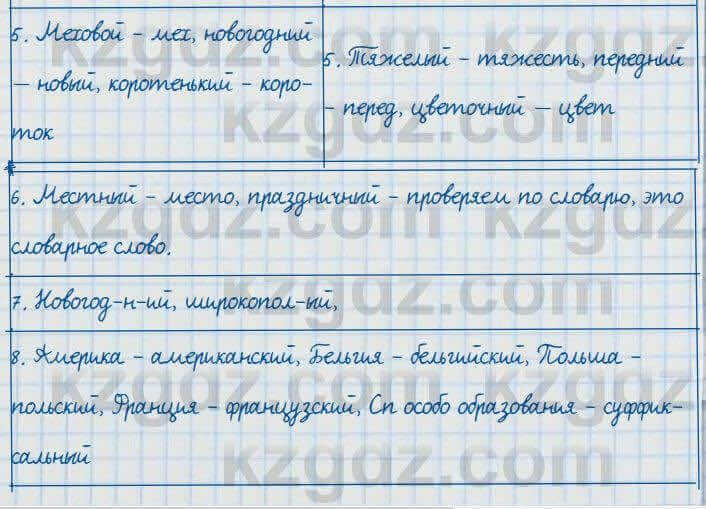 5. Меховой – мех, новогодний
– новый, коротенький – коро-
ток
5. Тяжелый – тяжесть, передний
– перед, цветочный – цвет
6. Местный – место, праздничный – проверяем по словарю, это
словарное слово.
7. Новогод-н-ий, широкопол-ый,
8. Америка – американский, Бельгия – бельгийский, Польша –
польский, Франция – французский, Сп особо образования – суффик-
сальный
kzgdz.com
kzgdz.com
kzgdz.com
kzgdz.com
kzgdz.com
kzgdz.com
kzgdz.com
kzgdz.com